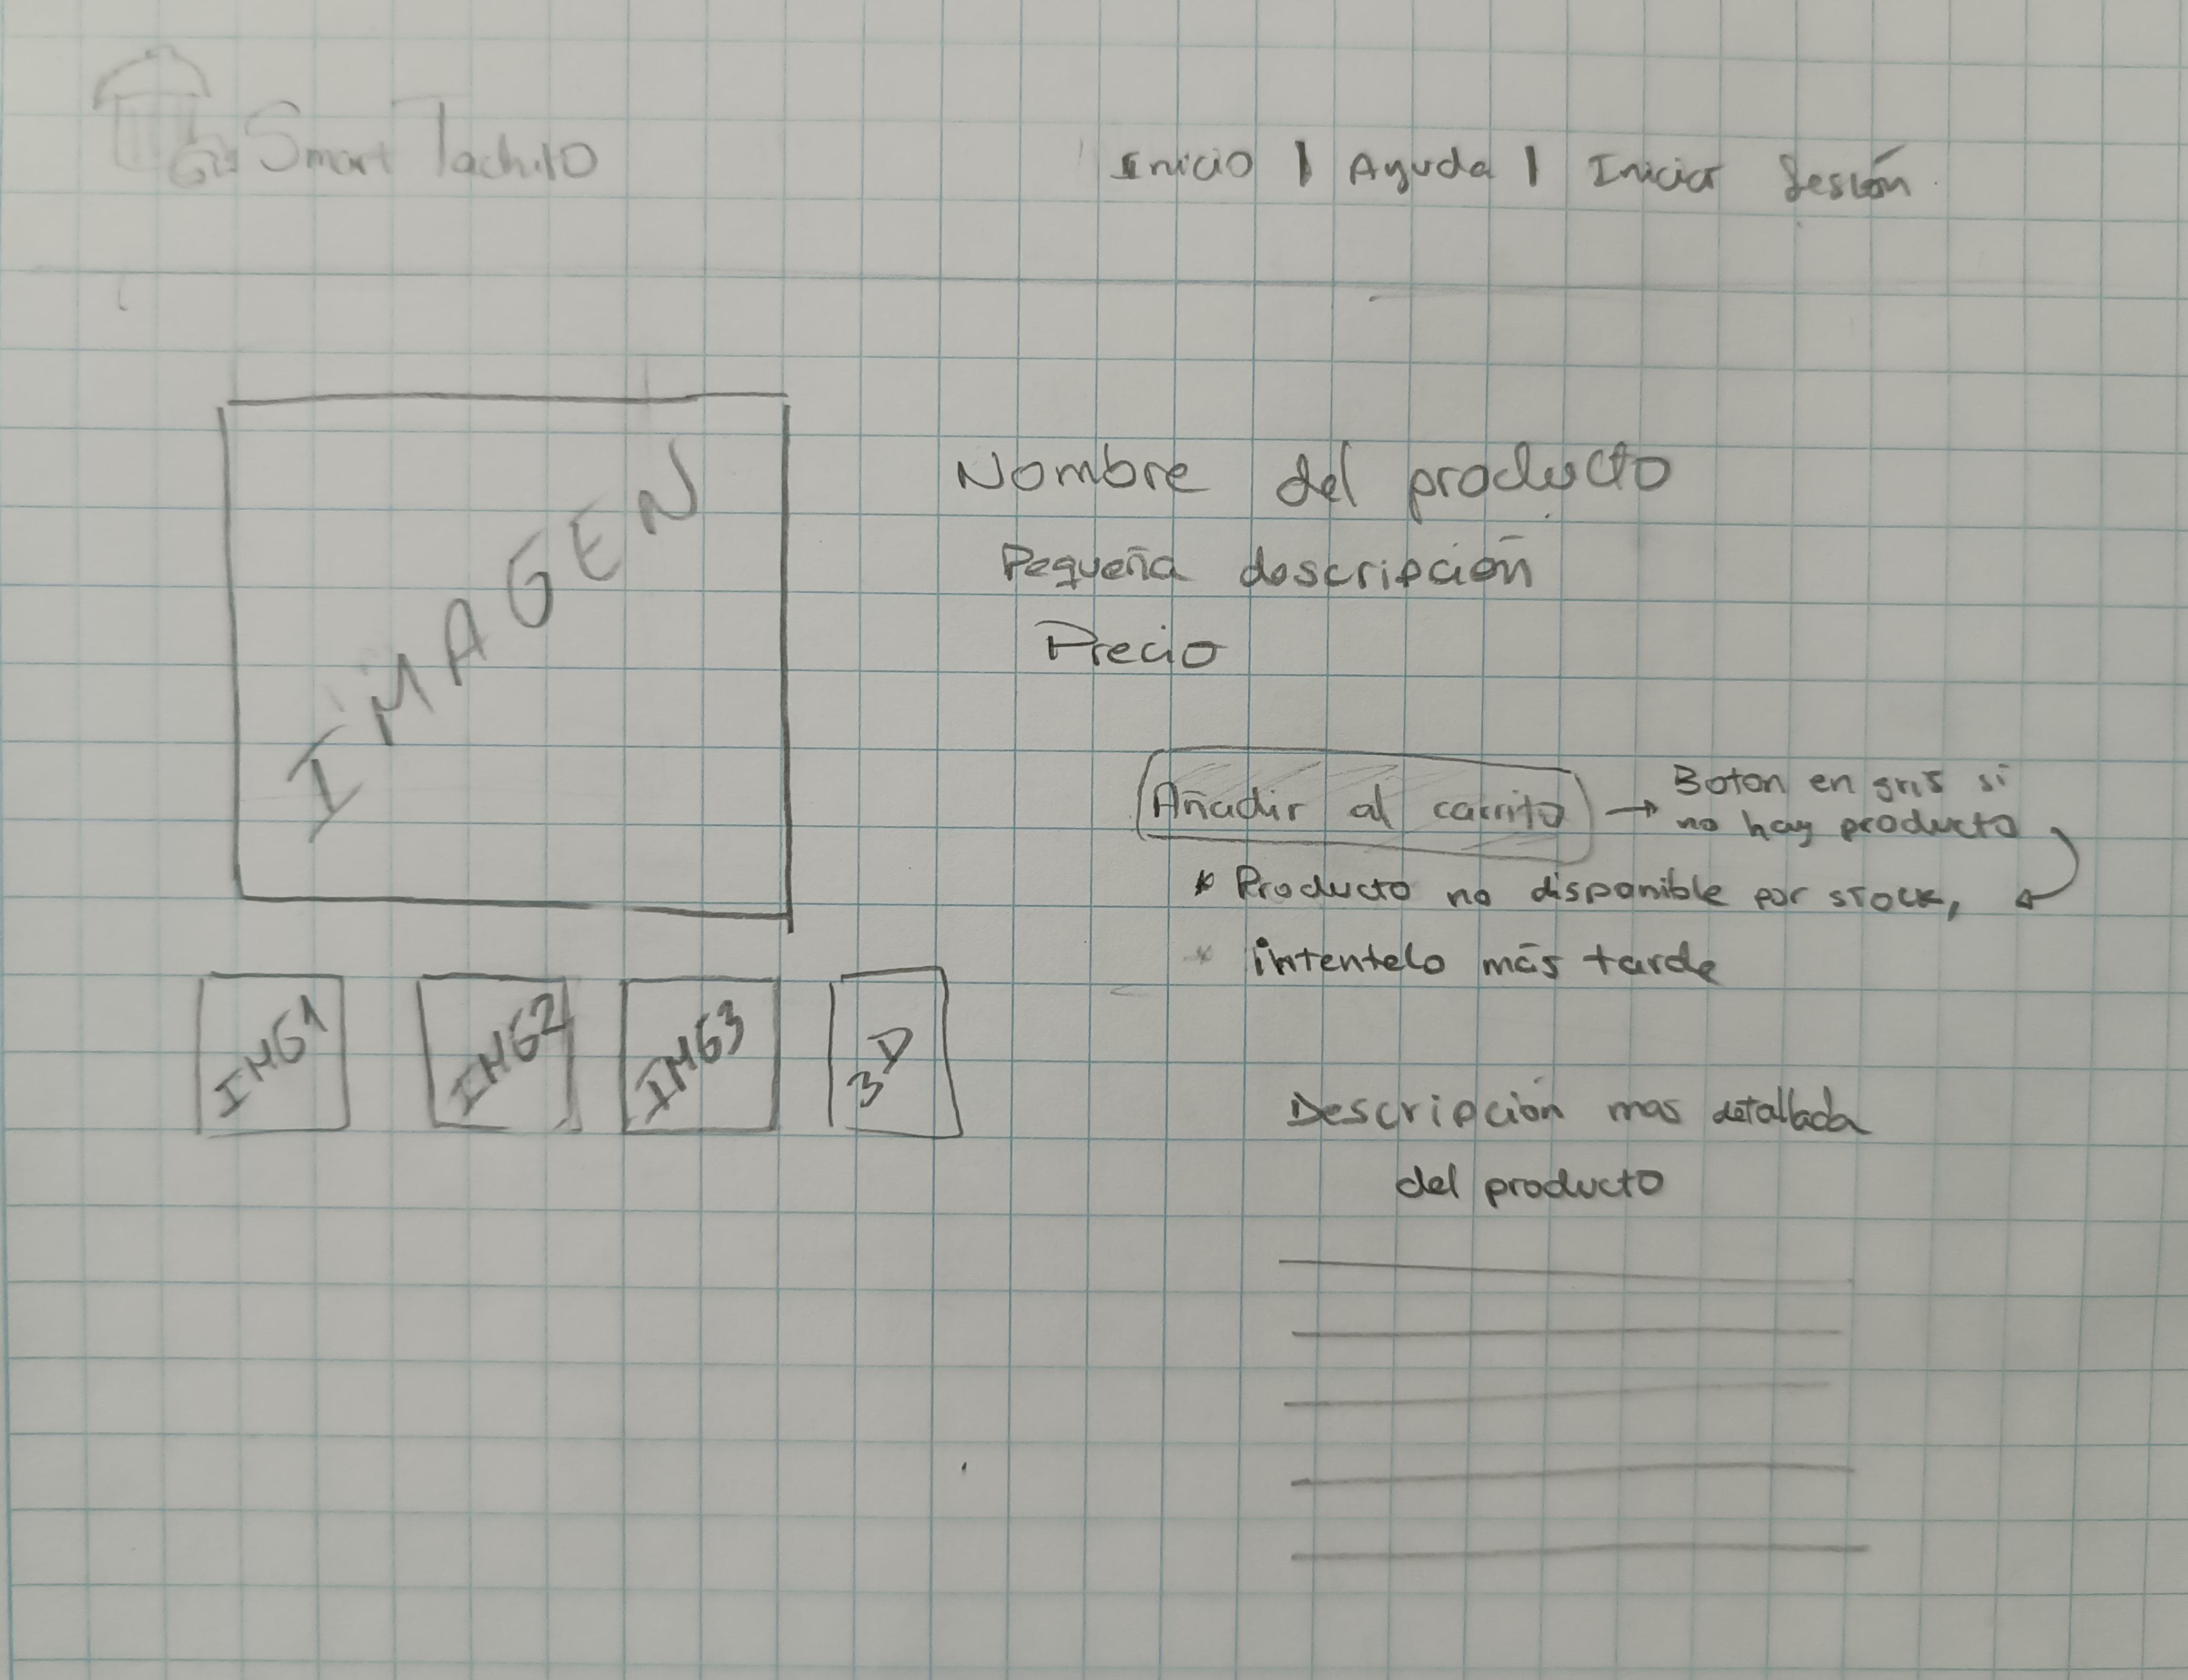 Smart Tachito
Inicio | Ayuda | Iniciar Sesión
IMAGEN
Nombre del producto
Pequeña descripción
Precio
Añadir al carrito → Boton en gris si
no hay producto
* Producto no disponible por stock,
* intentelo más tarde
IMG1 IMG2 IMG3 3D
Descripción mas detallada
del producto